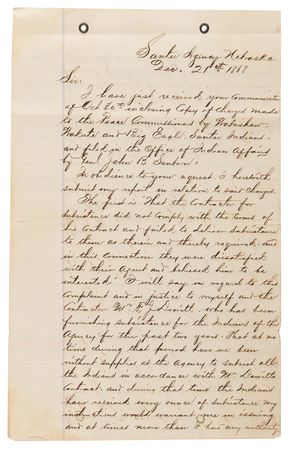 Santee Agency Nebraska
Dec. 21st 1868
Sir:
I have just received your Communication
of Oct 30th inclosing Copy of charges made
to the Peace Commissioners by Wabashaw
Wakute and Big Eagle. Santee Indians.
and filed in the Office of Indian Affairs
by Genl John B. Sanborn.
In obedience to your request I herewith
submit my report in relation to said charges.
The first is "That the Contractor for
Subsistence did not comply with the terms of
his Contract and failed to deliver subsistence
to them as therein and thereby required; and
in this connection they were dissatisfied
with their Agent and believed him to be
interested." I will say in regard to this
Complaint and in justice to myself and the
Contractor Mr. Devitt, who has been
furnishing subsistance for the Indians of this
Agency for the past two years. That at no
time during that period have we been
without supplies at the Agency to subsist all
the Indians in accordance with Mr. Devitts
Contract. and during that time the Indians
have received every ounce of subsistance my
instructions would warrant me in issuing
and at times more than I had any authority